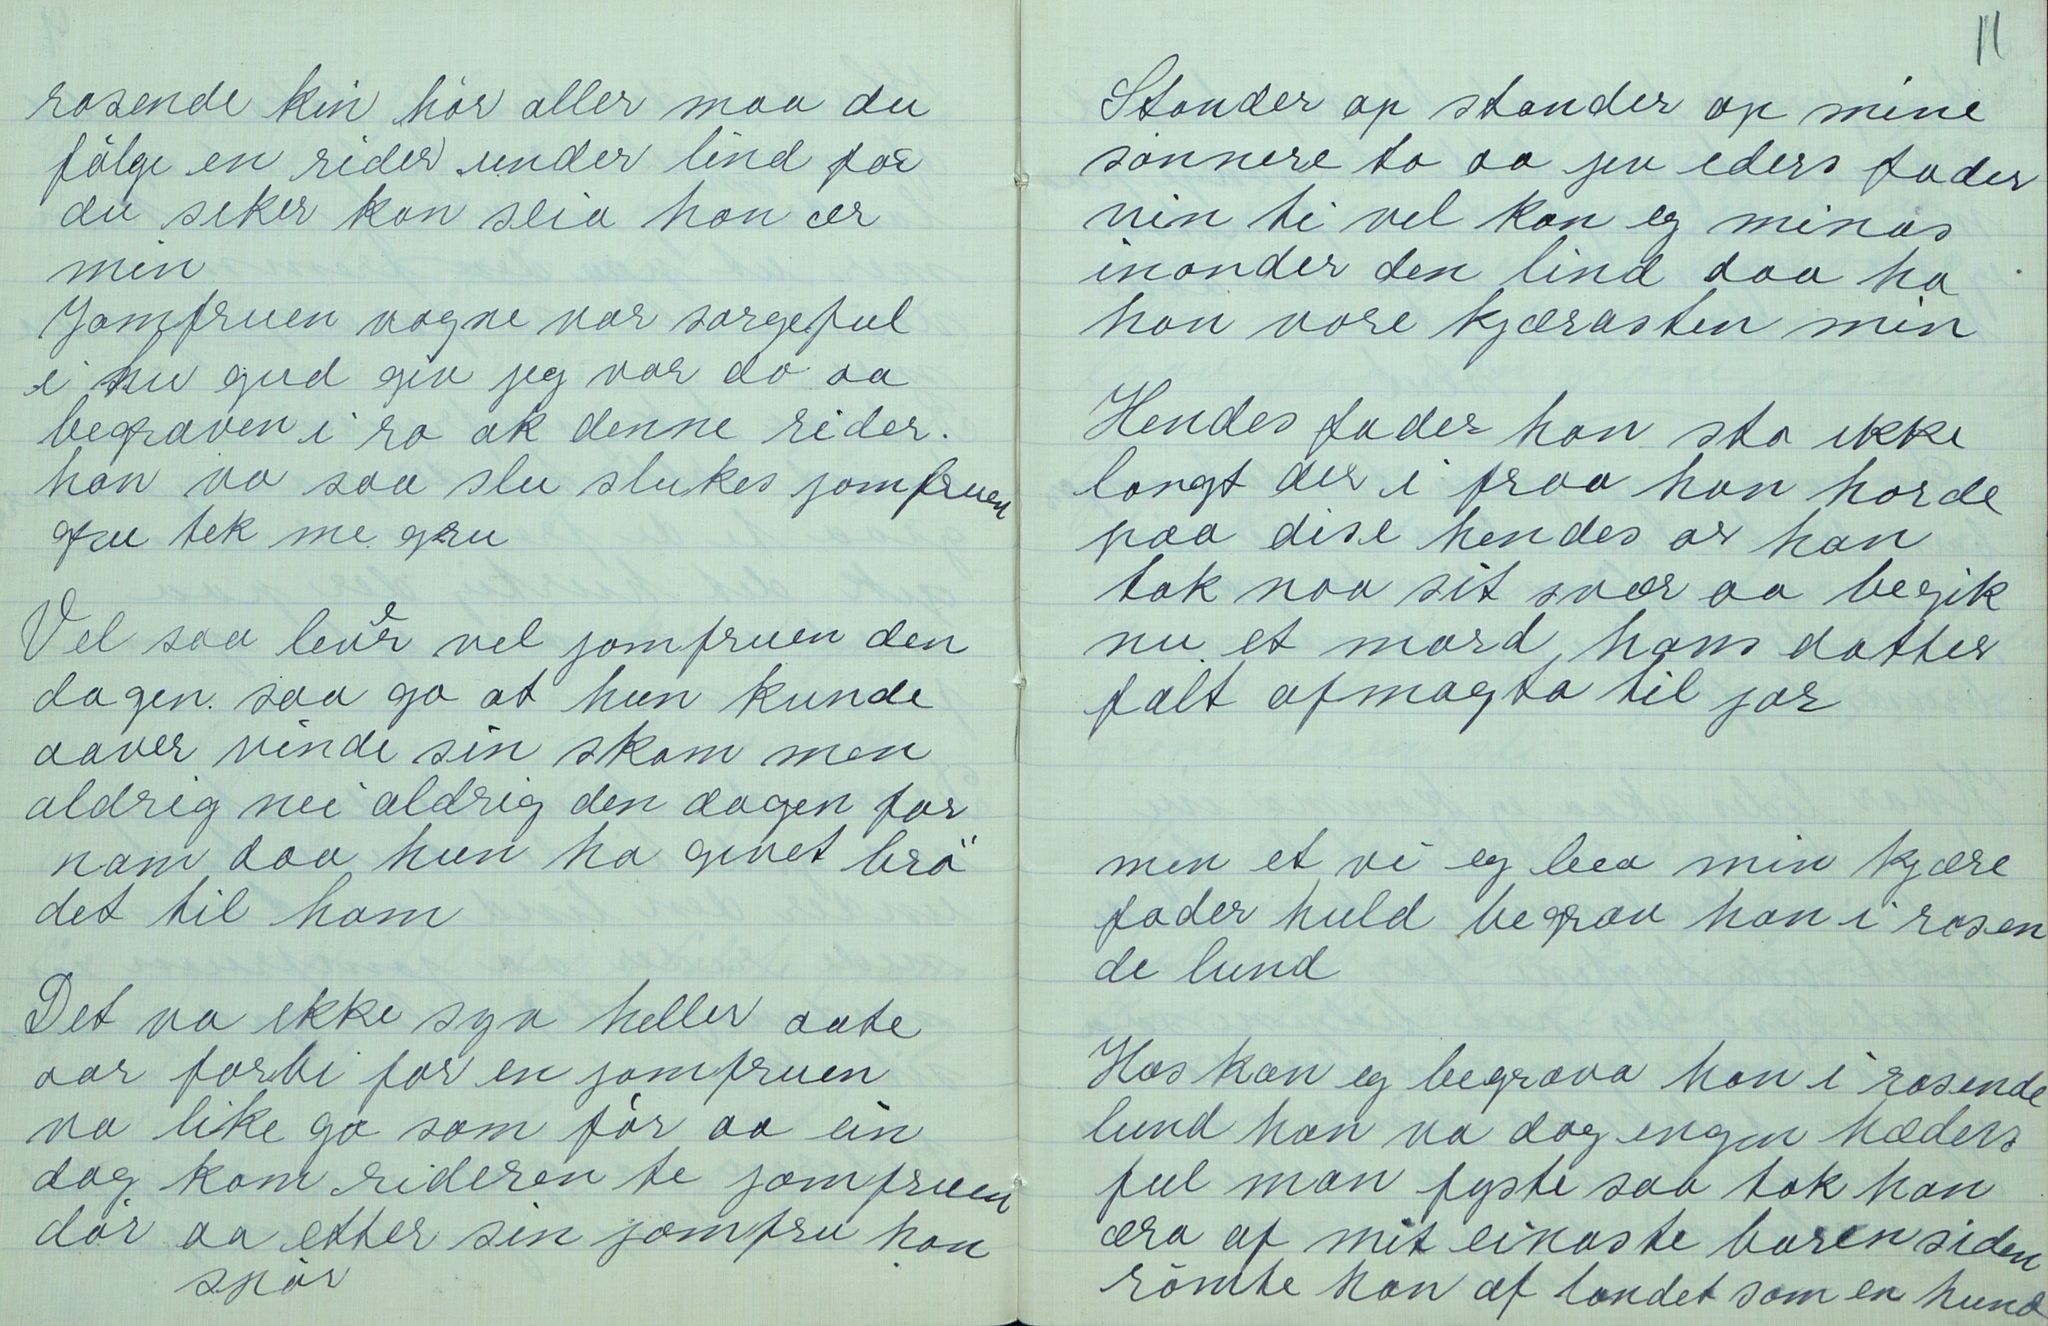 rosende kin hör aller maa du
fölge en rider under lind for
du seker kan seia han er
min
Jomfruen vogne var sorgeful
i hu gud giv jeg var dö aa
begraven i ro ak denne rider.
han va saa slu slukes jomfruen
gru tek me gru
Vel saa lever vel jomfruen den
dagen. saa go at hun kunde
aaver vinde sin skam men
aldrig nei aldrig den dagen for
nam daa hun ha givet brö
det til ham
Det va ikke syv heller aate
aar forbi för en jomfruen
va like go som för aa ein
dag kom rideren te jomfruen
dör aa etter sin jomfru han
spör
11
Stander op stander op mine
sönnere to aa jev eders fader
vin ti vel kan eg minas
inonder den lind daa ha
han vore kjærasten min
Hendes fader han sto ikke
langt der i fraa han hörde
paa dise hendes or han
tok naa sit svær aa begik
nu et mord, hans datter
falt afmagta til jor
men et vi eg bea min kjære
fader huld begrav han i rosen
de lund
Hos kan eg begrava han i rosende
lund han va dog engen hæders
ful man fyste saa tok han
æra af mit einaste baren siden
römte han af landet som en hund